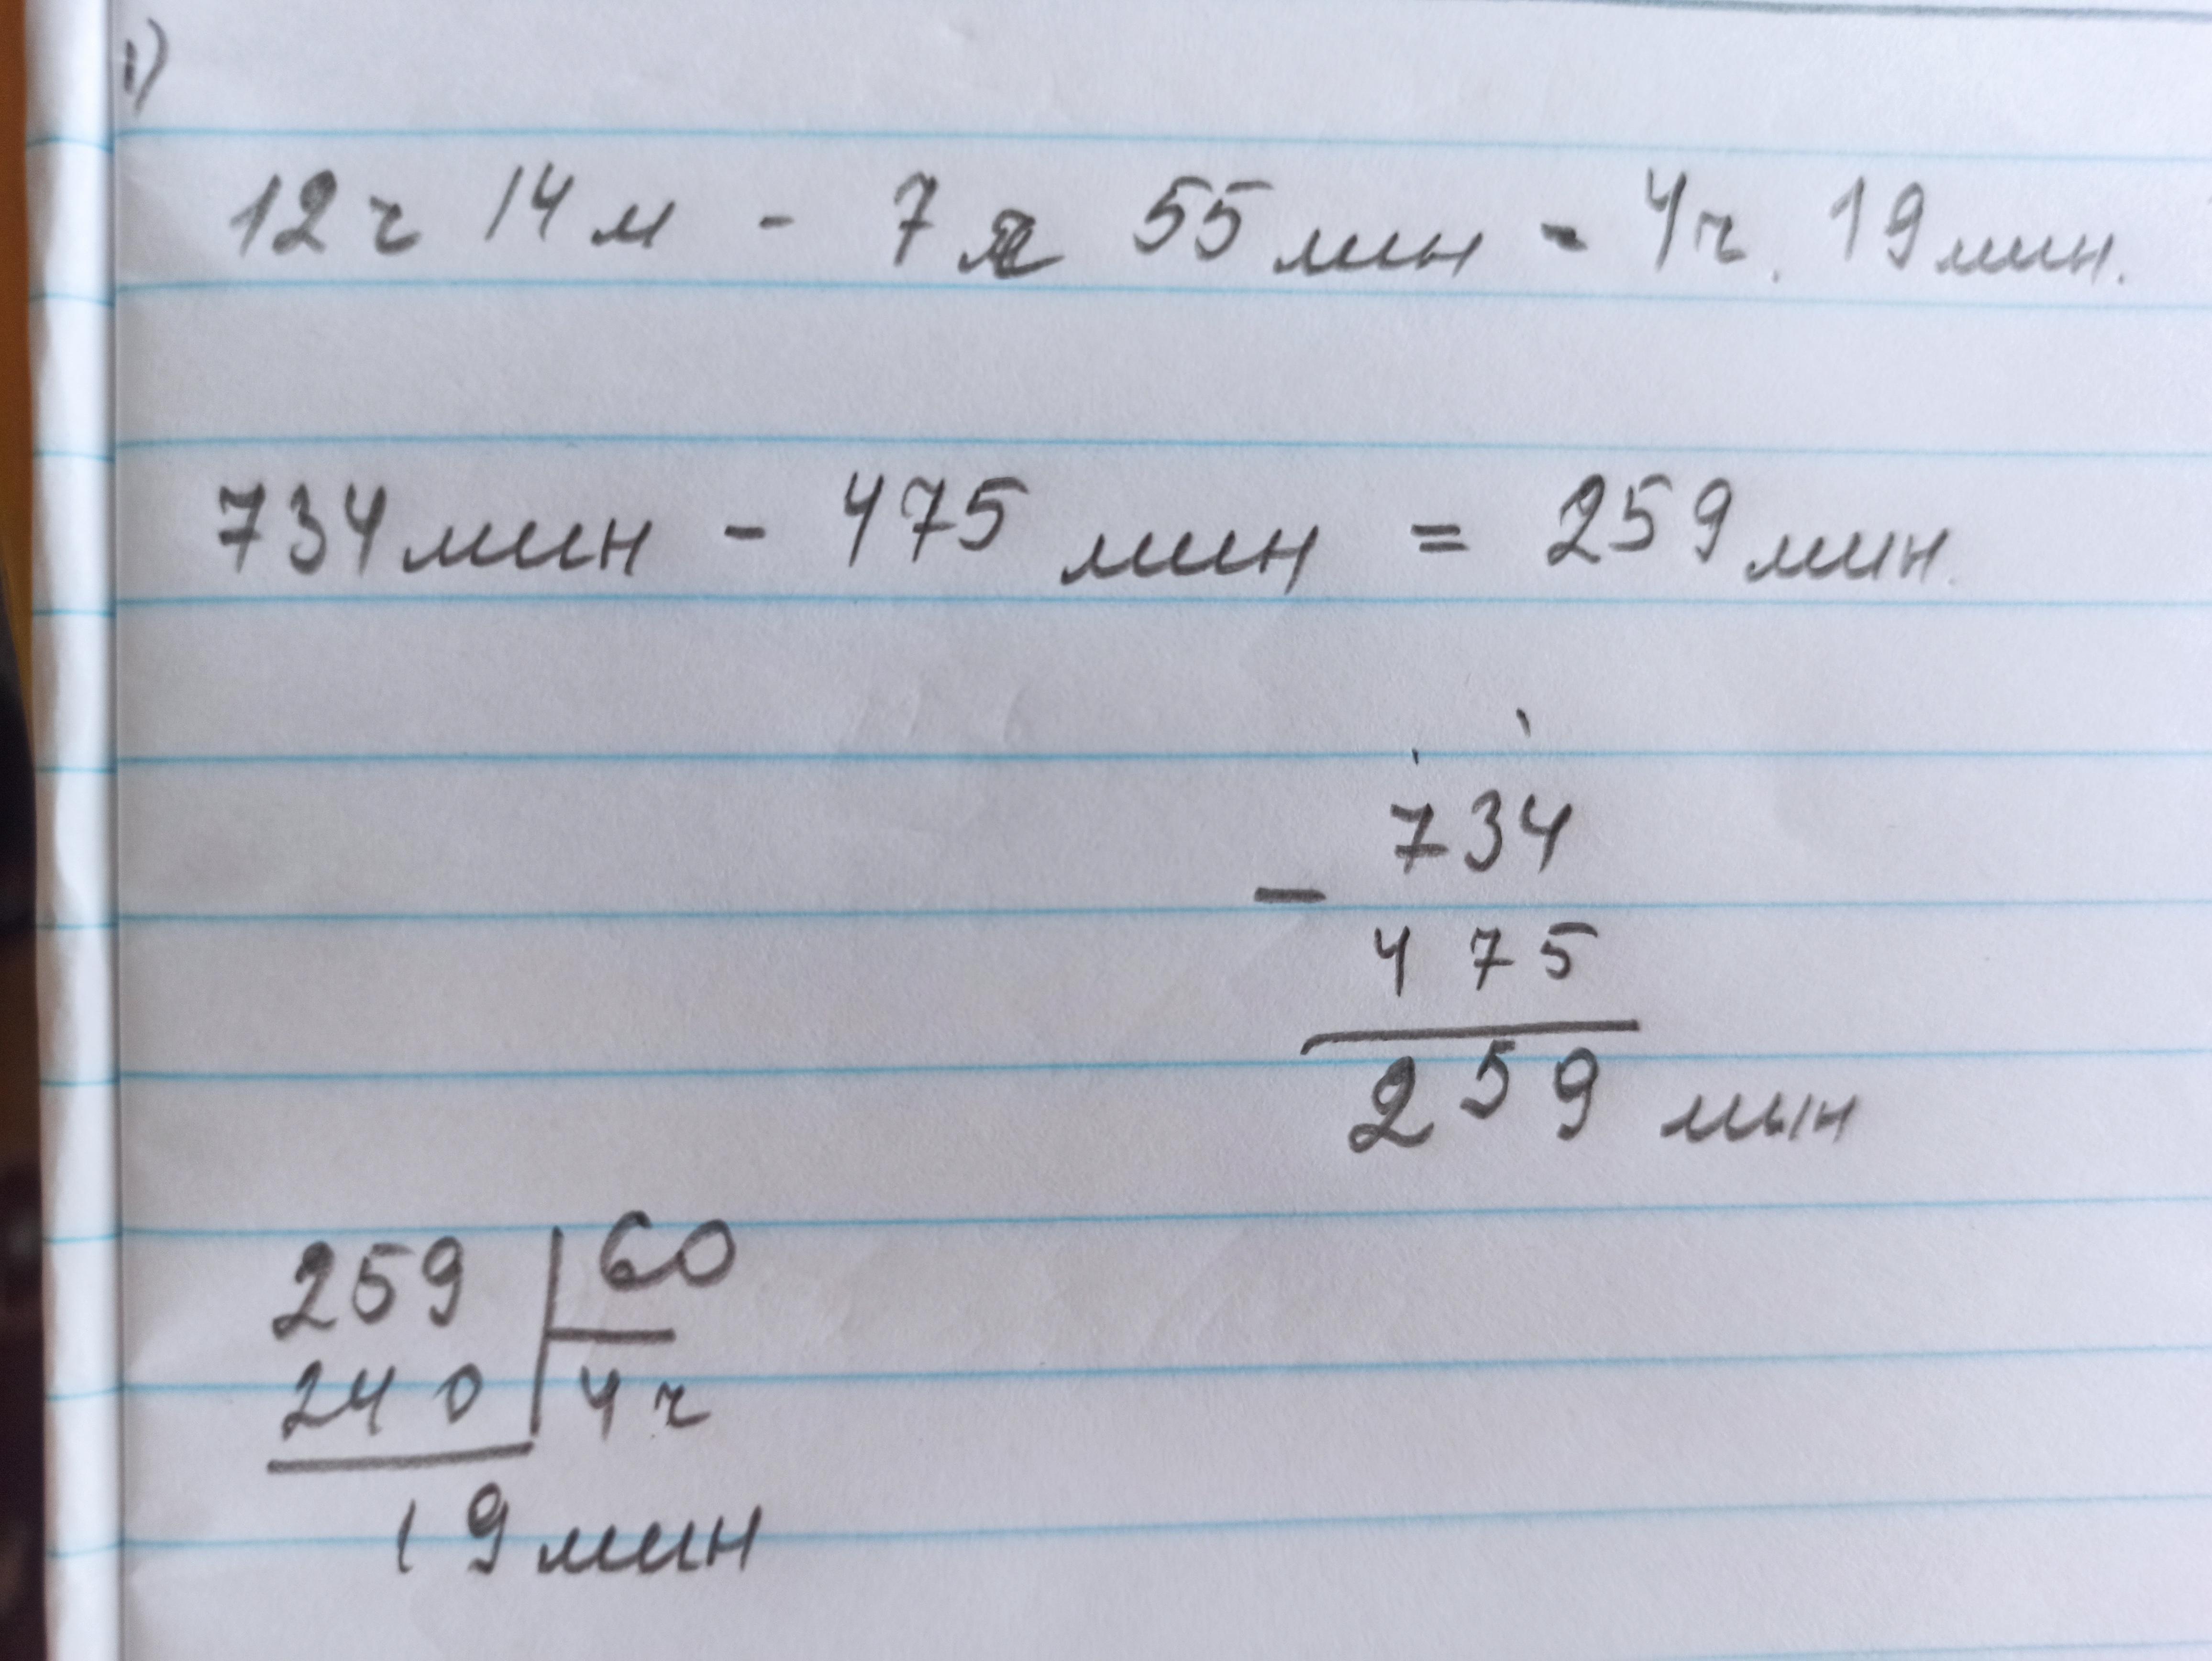 1)
12 ч 14 м - 7 ч 55 мин = 4 ч. 19 мин.
734 мин - 475 мин = 259 мин.
734
-
475
259 мин
259 | 60
240 | 4 ч
19 мин